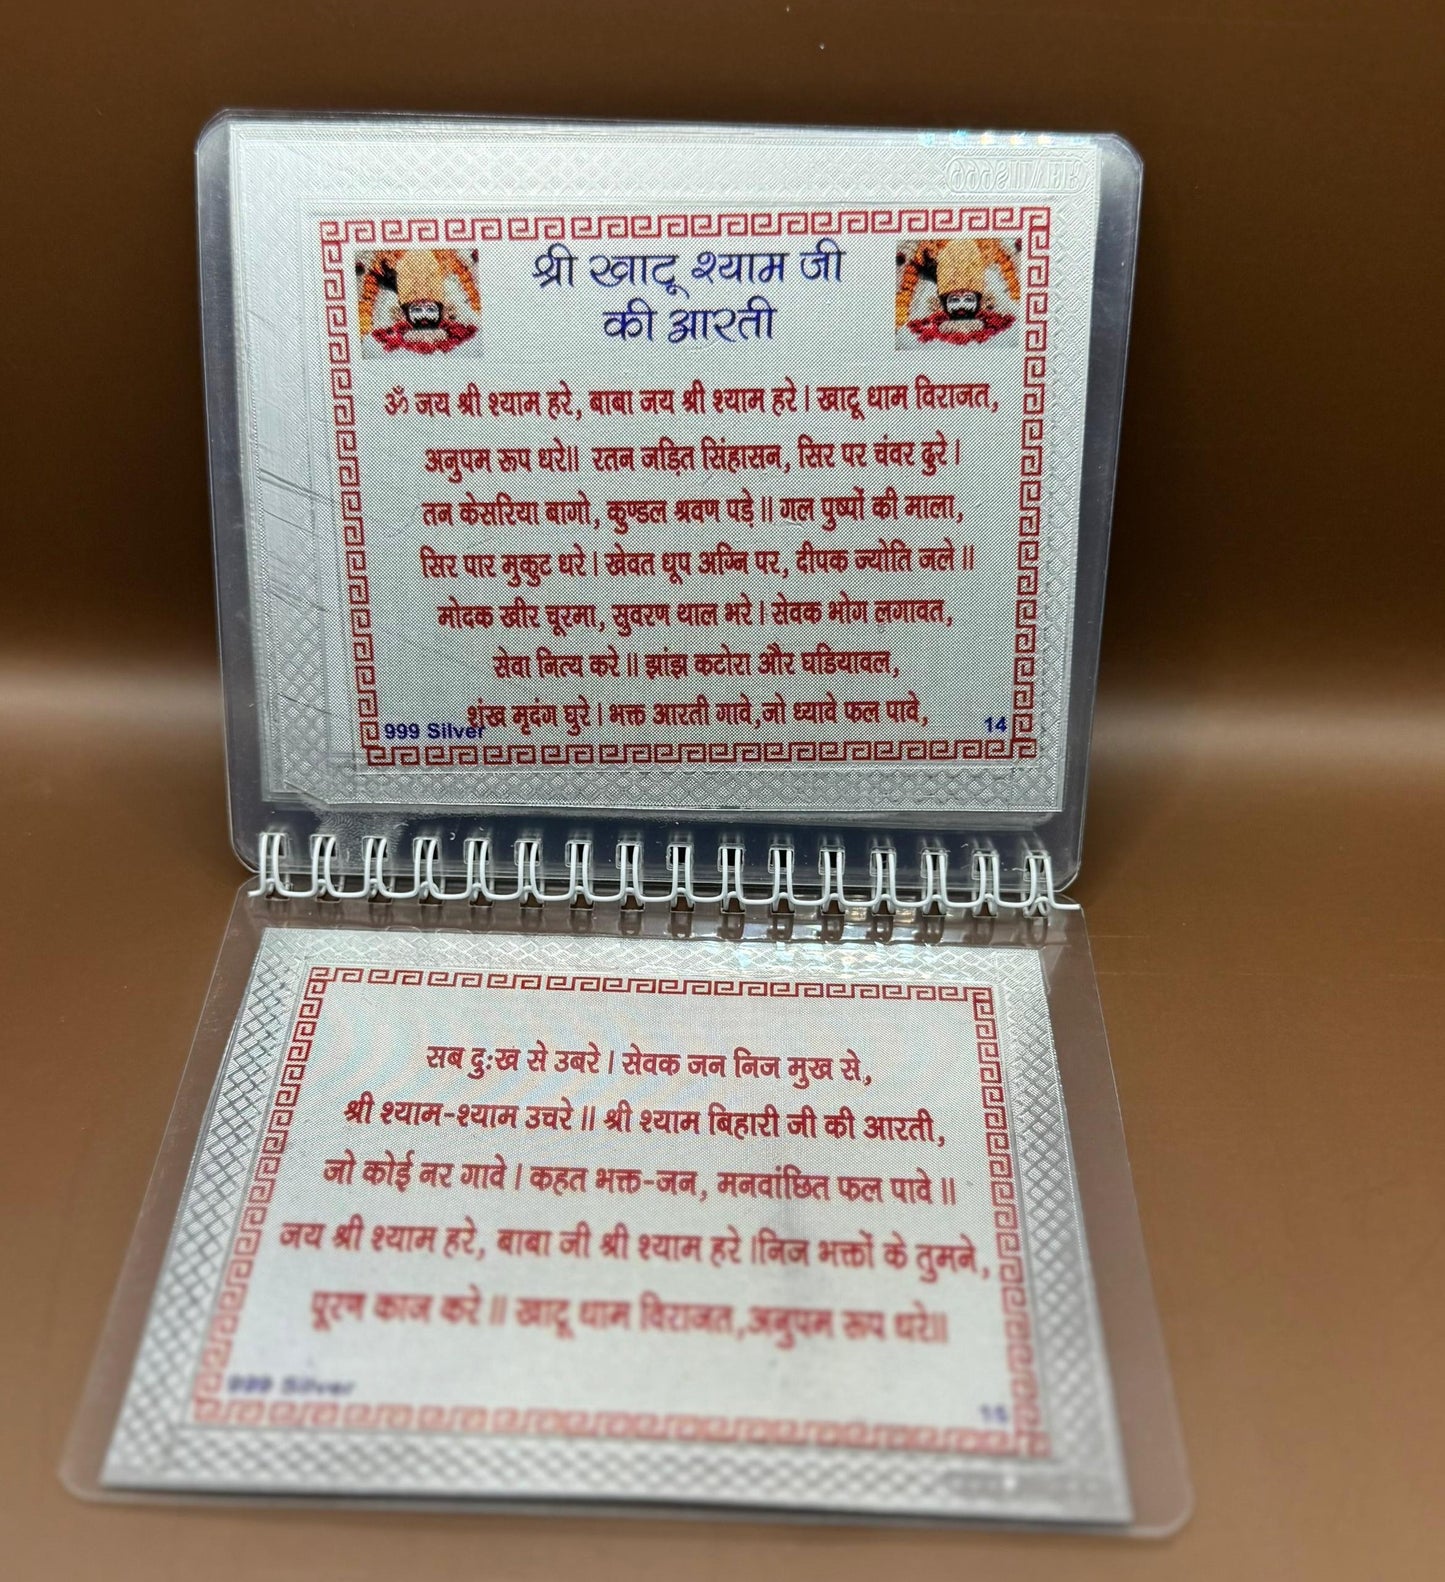 श्री खाटू श्याम जी
की आरती
ॐ जय श्री श्याम हरे, बाबा जय श्री श्याम हरे। खाटू धाम विराजत,
अनुपम रूप धरे॥ रतन जड़ित सिंहासन, सिर पर चंवर ढुरे।
तन केसरिया बागो, कुण्डल श्रवण पड़े॥ गल पुष्पों की माला,
सिर पार मुकुट धरे। खेवत धूप अग्नि पर, दीपक ज्योति जले॥
मोदक खीर चूरमा, सुवरण थाल भरे। सेवक भोग लगावत,
सेवा नित्य करे॥ झांझ कटोरा और घडियावल,
शंख मृदंग घुरे। भक्त आरती गावे,जो ध्यावे फल पावे,
999 Silver
14
सब दुःख से उबरे। सेवक जन निज मुख से,
श्री श्याम-श्याम उचरे॥ श्री श्याम बिहारी जी की आरती,
जो कोई नर गावे। कहत भक्त-जन, मनवांछित फल पावे॥
जय श्री श्याम हरे, बाबा जी श्री श्याम हरे।निज भक्तों के तुमने,
पूरण काज करे॥ खाटू धाम विराजत,अनुपम रूप धरे॥
999 Silver